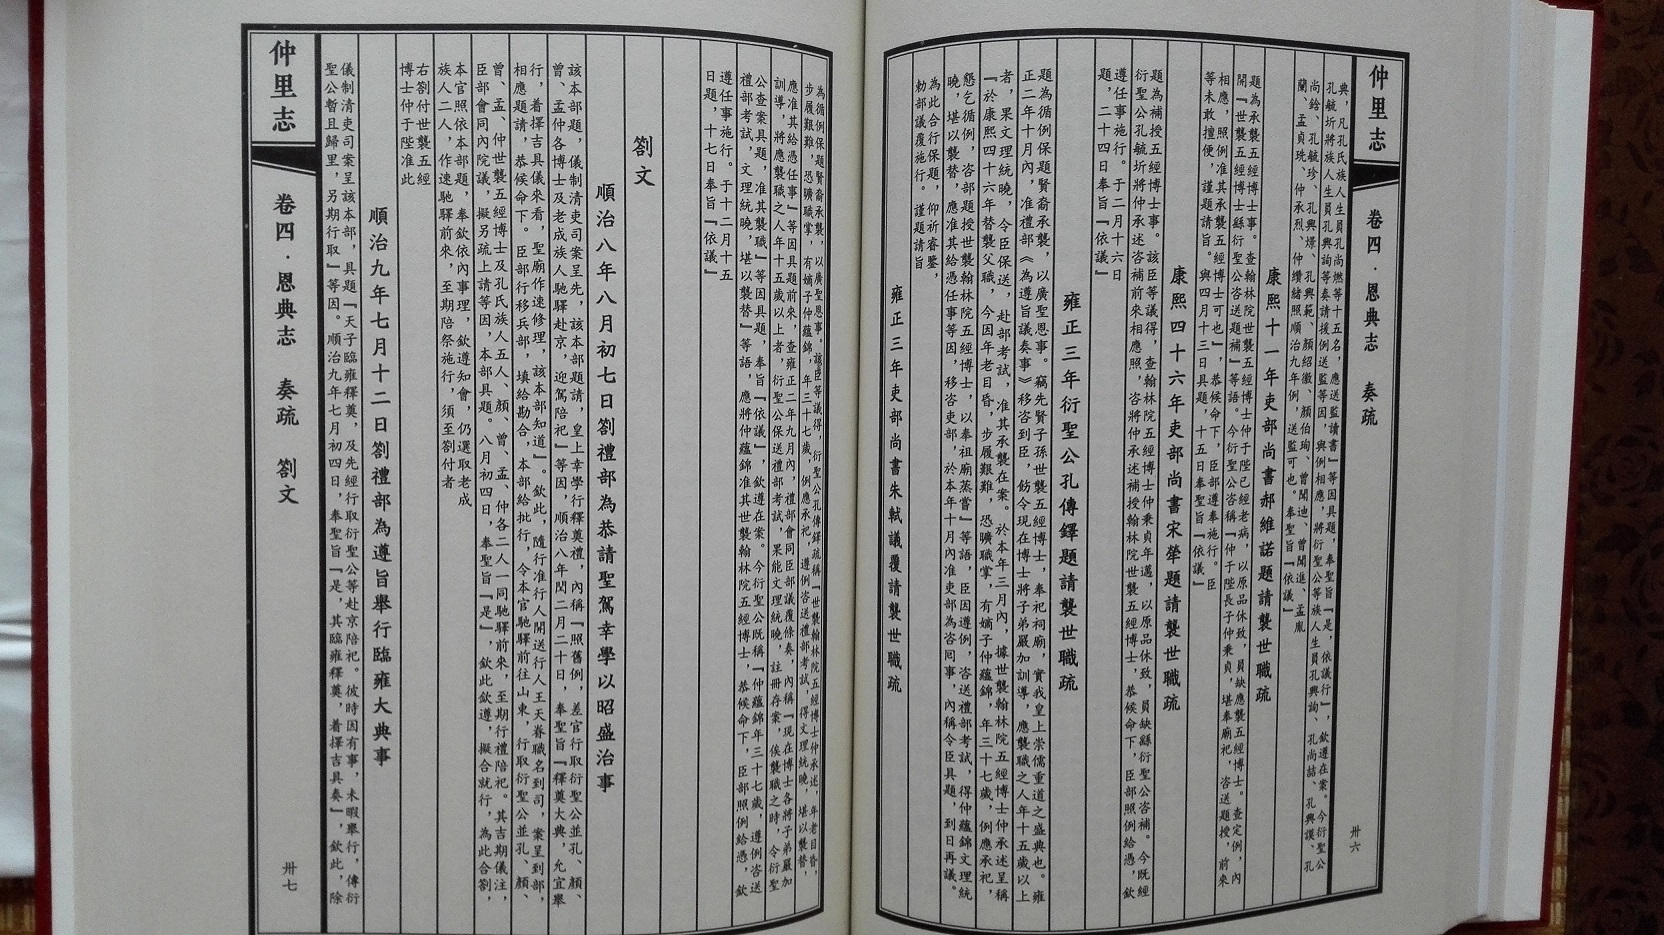 仲里志
卷四·恩典志 奏疏
卅六
典，凡孔氏族人生員孔尚燃等十五名，應送監讀書』等因具題，奉聖旨『是，依議行』，欽遵在案。今衍聖公
孔毓圻將族人生員孔興詢等奏請援例送監等因，與例相應，將衍聖公等族人生員孔興詢、孔尚喆、孔興謨、孔
尚鉿、孔毓珍、孔興爆、孔興範、顏紹徽、顏伯珣、曾聞迪、曾聞進、孟胤
蘭、孟貞珗、仲承烈、仲纘緒照順治九年例，送監可也。奉聖旨『依議』
康熙十一年吏部尚書郝維諾題請襲世職疏
題為承襲五經博士事。查翰林院世襲五經博士仲于陛已經老病，以原品休致，員缺應襲五經博士。查定例，內
開『世襲五經博士縣衍聖公咨送題補』等語。今衍聖公咨稱『仲于陛長子仲秉貞，堪奉廟祀，咨送題授，前來
相應，照例准其承襲五經博士可也』，恭候命下，臣部遵奉施行。臣
等未敢擅便，謹題請旨。與四月十三日具題，十五日奉聖旨『依議』
康熙四十六年吏部尚書宋犖題請襲世職疏
題為補授五經博士事。該臣等議得，查翰林院五經博士仲秉貞年邁，以原品休致，員缺繇衍聖公咨補。今既經
衍聖公孔毓圻將仲承述咨補前來相應照，咨將仲承述補授翰林院世襲五經博士，恭候命下，臣部照例給憑，欽
遵任事施行。于二月十六日
題，二十四日奉旨『依議』
雍正三年衍聖公孔傳鐸題請襲世職疏
題為循例保題賢裔承襲，以廣聖恩事。竊先賢子孫世襲五經博士，奉祀祠廟，實我皇上崇儒重道之盛典也。雍
正二年十月內，准禮部《為遵旨議奏事》移咨到臣，飭令現在博士將子弟嚴加訓導，應襲職之人年十五歲以上
者，果文理統曉，令臣保送，赴部考試，准其承襲在案。於本年三月內，據世襲翰林院五經博士仲承述呈稱
『於康熙四十六年替襲父職，今因年老目昏，步履艱難，恐曠職掌，有嫡子仲蘊錦，年三十七歲，例應承祀，
懇乞循例，咨部題授世襲翰林院五經博士，以奉祖廟蒸嘗』等語，臣因遵例，咨送禮部考試，得仲蘊錦文理統
曉，堪以襲替，應准其給憑任事等因，移咨吏部，於本年十月內准吏部為咨同事，內稱令臣具題，到日再議。
為此合行保題，仰祈睿鑒，
勅部議覆施行。謹題請旨
雍正三年吏部尚書朱軾議覆請襲世職疏
為循例保題賢裔承襲，以廣聖恩事。該臣等議得，衍聖公孔傳鐸疏稱『世襲翰林院五經博士仲承述，年老目昏，
步履艱難，恐曠職掌，有嫡子仲蘊錦，年三十七歲，例應承祀，遵例咨送禮部考試，得文理統曉，堪以襲替，
應准其給憑任事』等因具題前來，查雍正二年九月內，禮部會同臣部議覆條奏，內稱『現在博士各將子弟嚴加
訓導，將應襲職之人年十五歲以上者，衍聖公保送禮部考試，果能文理統曉，註冊存案，俟襲職之時，令衍聖
公查案具題，准其襲職』等因具題，奉旨『依議』，欽遵在案。今衍聖公既稱『仲蘊錦年三十七歲，遵例咨送
禮部考試，文理統曉，堪以襲替』等語，應將仲蘊錦准其世襲翰林院五經博士，恭候命下，臣部照例給憑，欽
遵任事施行。于十二月十五
日題，十七日奉旨『依議』
劄文
順治八年八月初七日劄禮部為恭請聖駕幸學以昭盛治事
該本部題，儀制清吏司案呈先，該本部題請，皇上幸學行釋奠禮，內稱『照舊例，差官行取衍聖公並孔、顏、
曾、孟、仲各博士及老成族人馳驛赴京，迎駕陪祀』等因，順治八年閏二月二十日，奉聖旨『釋奠大典，允宜舉
行，着擇吉具儀來看，聖廟作速修理，該本部知道』。欽此，隨行准行人開送行人王天眷職名到司，案呈到部，
相應題請，恭候命下。臣部行移兵部，填給勘合，本部給批行，令本官馳驛前往山東，行取衍聖公並孔、顏、
曾、孟、仲世襲五經博士及孔氏族人五人、顏、曾、孟、仲各二人一同馳驛前來，至期行禮陪祀。其吉期儀注，
臣部會同內院議，擬另疏上請等因，本部具題。八月初四日，奉聖旨『是』，欽此欽遵，擬合就行，為此合劄，
本官照依本部題，奉欽依內事理，欽遵知會，仍選取老成
族人二人，作速馳驛前來，至期陪祭施行，須至劄付者
右劄付世襲五經
博士仲于陛准此
順治九年七月十二日劄禮部為遵旨舉行臨雍大典事
儀制清吏司案呈該本部，具題『天子臨雍釋奠，及先經行取衍聖公等赴京陪祀。彼時因有事，未暇舉行，傳衍
聖公暫且歸里，另期行取』等因。順治九年七月初四日，奉聖旨『是，其臨雍釋奠，着擇吉具奏』，欽此，除
仲里志
卷四·恩典志 奏疏 劄文
卅七